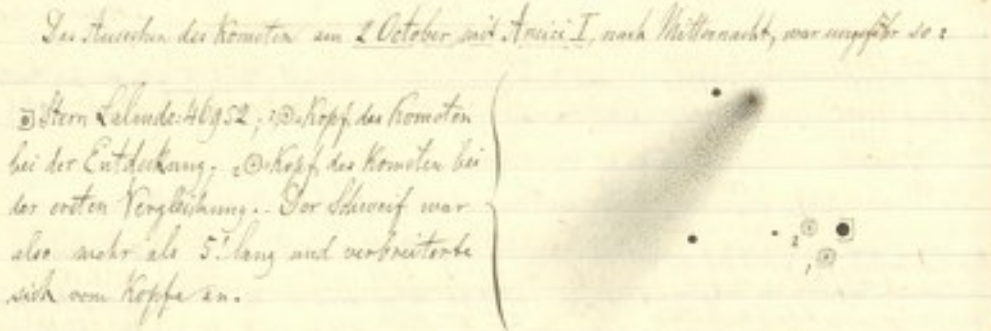 Das Aussehen des Kometen am 2 October, mit Amici I, nach Mitternacht, war ungefähr so:
Stern Lalande: 46952; 1 Kopf des Kometen
bei der Entdeckung; 2 Kopf des Kometen bei
der ersten Vergleichung.. Der Schweif war
also mehr als 5' lang und verbreiterte
sich vom Kopfe an.
2
1